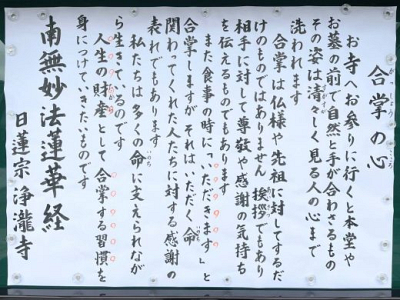 合掌の心
お寺へお参りに行くと本堂や
お墓の前で自然と手が合わさるもの
その姿は清々しく見る人の心まで
洗われます
合掌は仏様や先祖に対してするだ
けのものではありません 挨拶でもあり
相手に対して尊敬や感謝の気持ち
を伝えるものでもあります
また食事の時に「いただきます」と
合掌しますが それはいただく命
関わってくれた人たちに対する感謝の
表れでもあります
私たちは多くの命に支えられなが
ら生きているのです
人生の財産として 合掌する習慣を
身につけていきたいものです
南無妙法蓮華経
日蓮宗 浄瀧寺